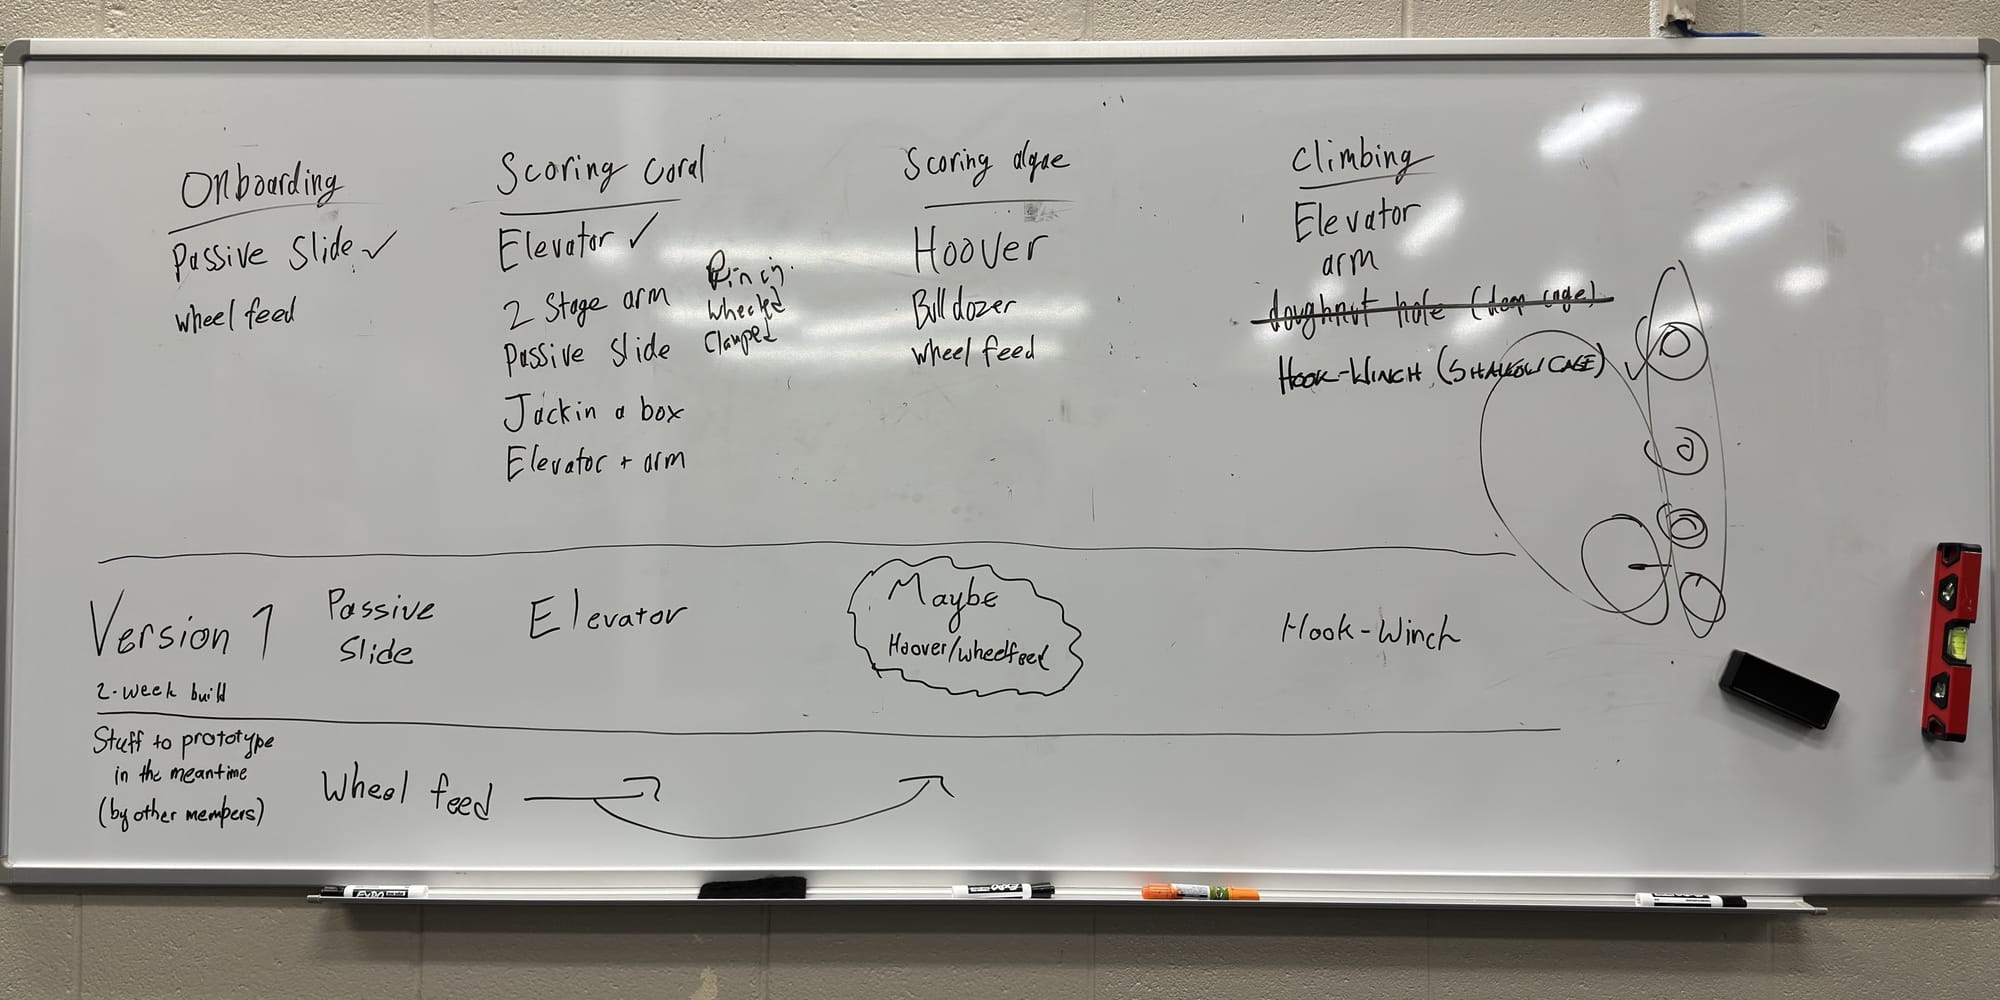 Onboarding
Passive Slide ✓
wheel feed
Scoring Coral
Elevator ✓
2 Stage arm
Passive slide
Jack in a box
Elevator + arm
Wheeled
Clamped
Scoring algae
Hoover
Bulldozer
wheel feed
Climbing
Elevator
arm
doughnut hole (deep cage)
HOOK-WINCH (SHALLOW CAGE) ✓
Version 1
2-week build
Passive
Slide
Elevator
Maybe
Hoover/wheelfeed
Hook-Winch
Stuff to prototype
in the meantime
(by other members)
Wheel feed
EXPO
EXPO